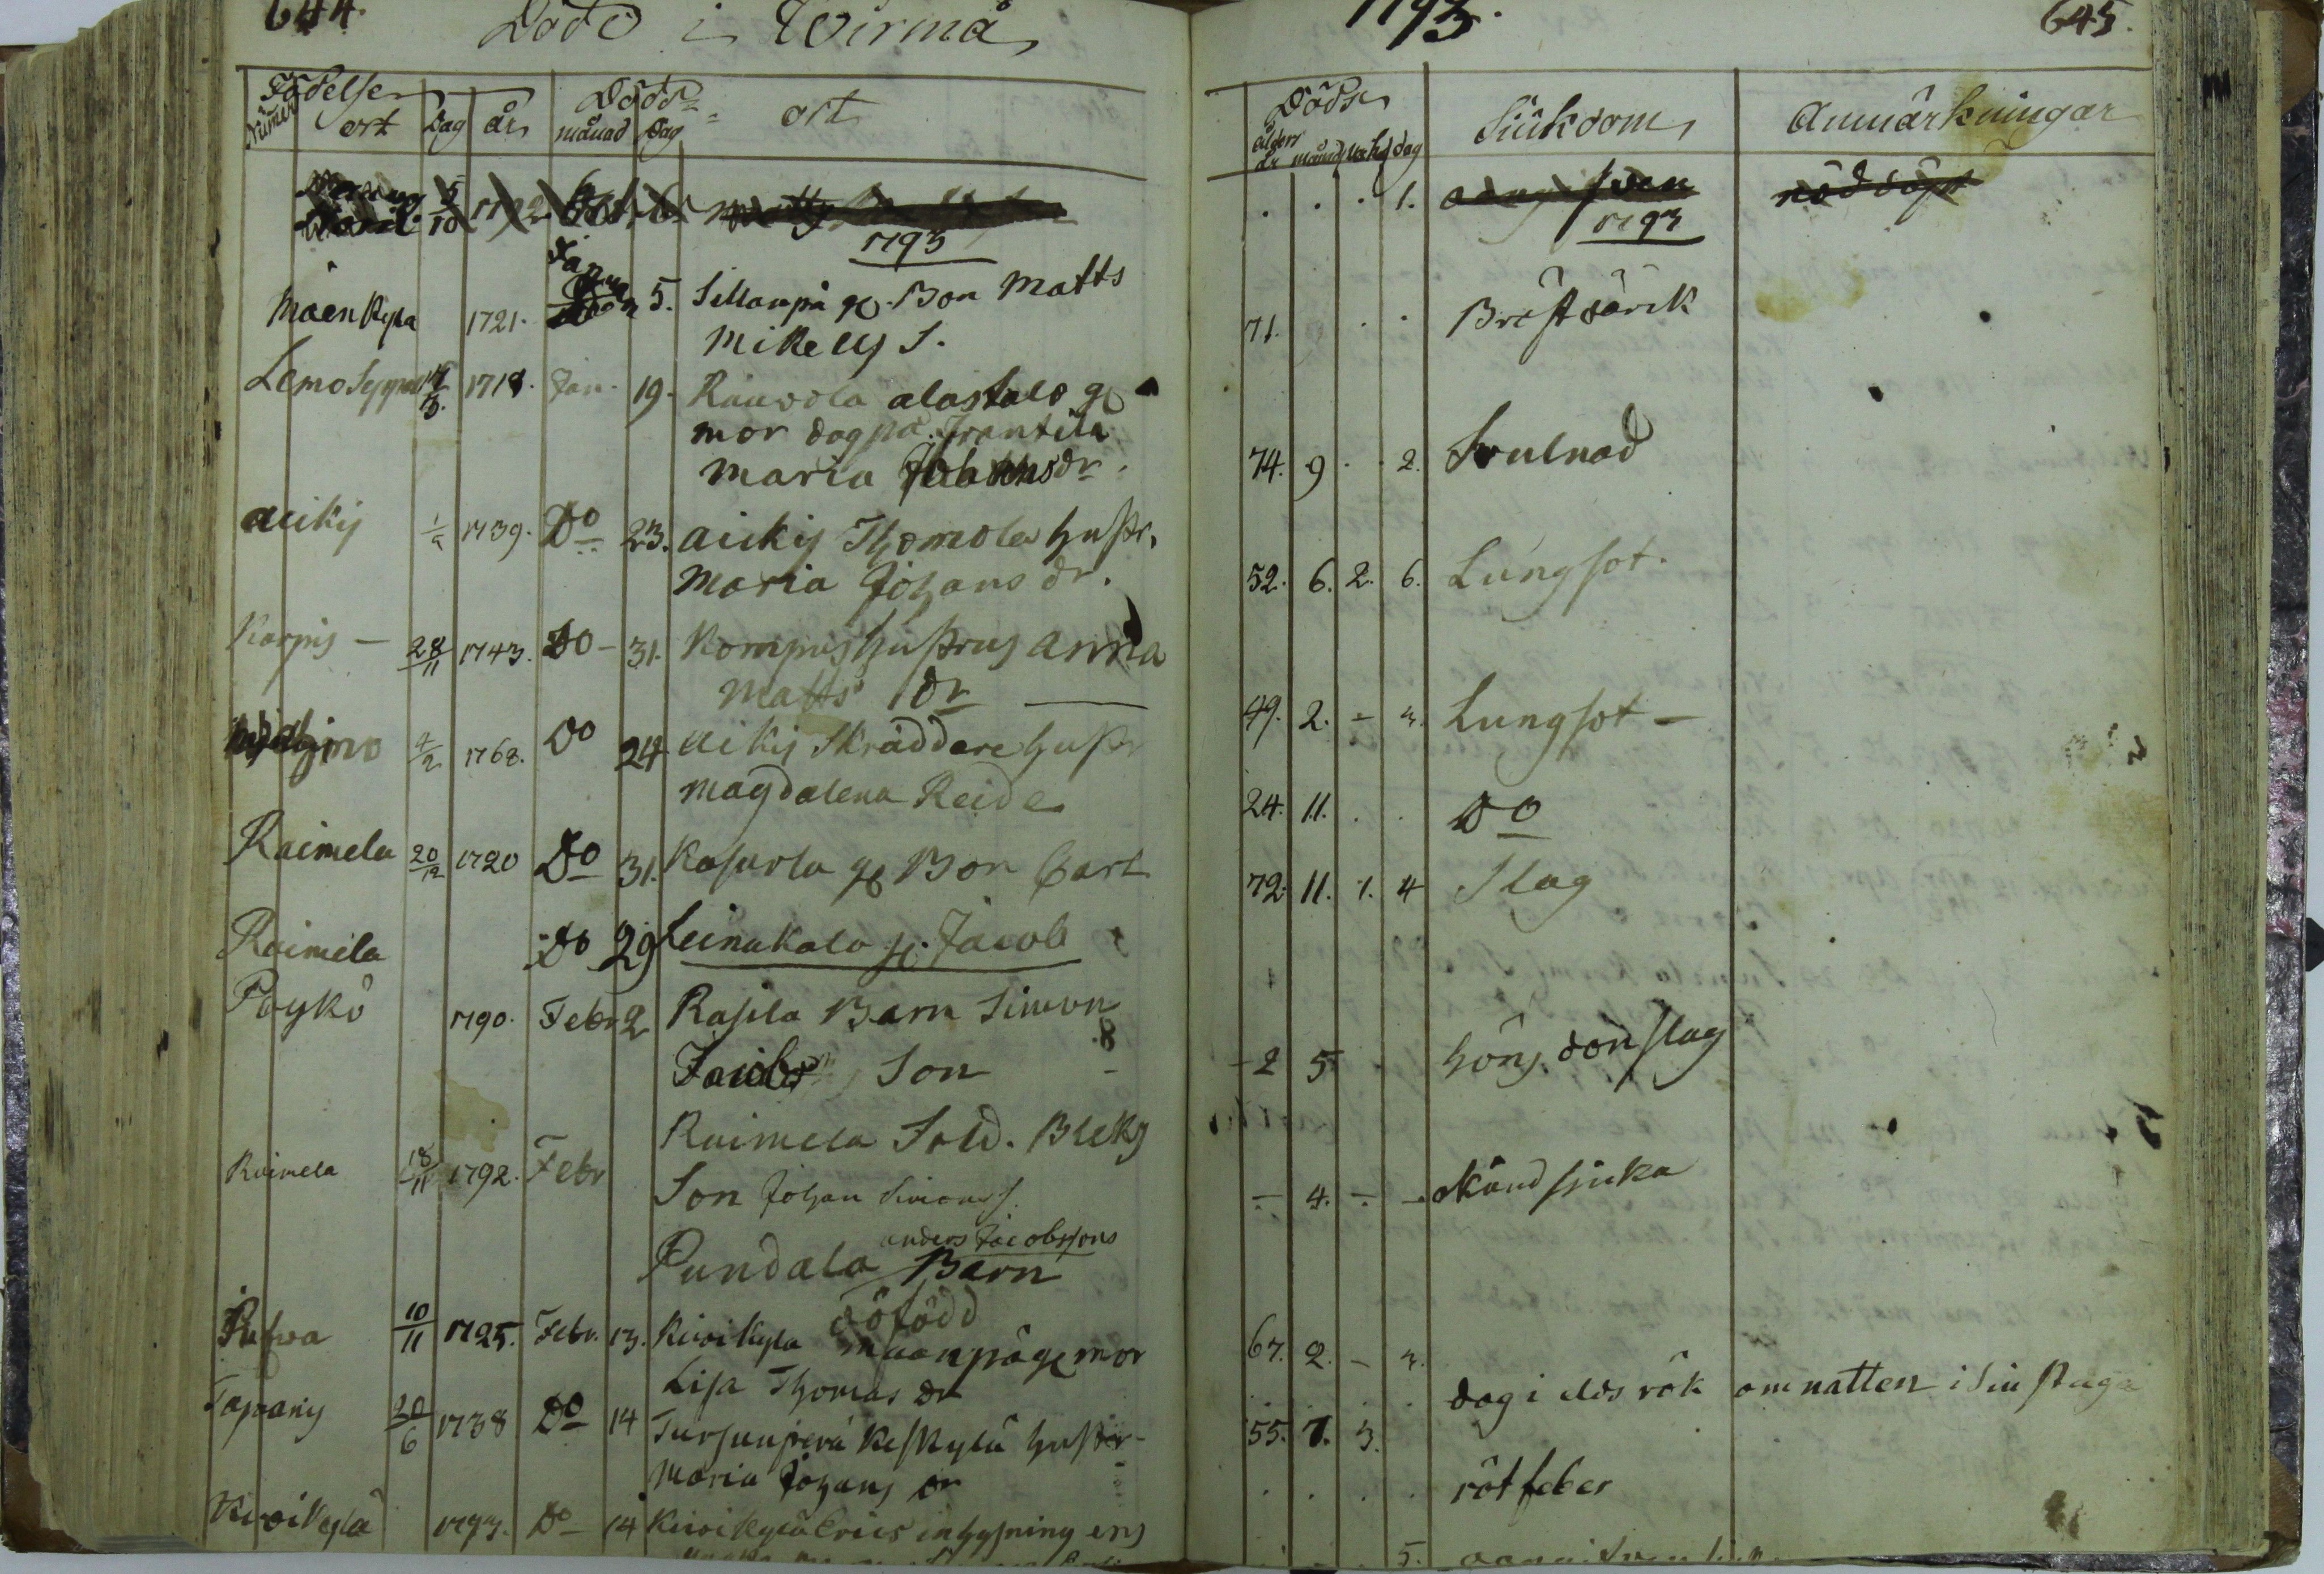 644.
Döde i Wirmå
1793.
645.
Födelse
Döds
Numer ort Dag år månad Dag ort
Döds
ålders
år månad weka dag
Siukdom
Anmärkningar
1793
1793
1.
Mäenkylä 1721. Januar 5. Sillanpä gl. Bon Matts
Mikells S.
71. Bröstvärk
Lemo 1718. Jan. 19. Rauvola alastalo gl
mor dog på Frantila
Maria Johansdr.
74. 9 2. Svulnad
aiiky 1739. Do 23. aiiky Thomola hustr.
Maria Johans dr.
52. 6. 2. 6. Lungsot.
Korpis 28/11 1743. Do 31. Kompis hustrus anna
Matts dr
49. 2. - Lungsot
1768. Do 24 aiky Skräddare hustr
Magdalena Reide
24. 11. Do
Raimela 20/12 1720 Do 31. Kasurla gl Bon Carl
72. 11. 1. 4 Slag
Raimela Do 29 Leinakala gl. Jacob
Pöykö 1790. Febr 2 Rasila Barn Simon
Jacobs Son
2 5 slag
Raimela 18/11 1792. Febr Raimela Sold. Bleks
Son Johan Simons S.
- 4. - - okänd siuka
Pundala anders Jacobssons
Barn
döfödd
10/11 1725. Febr. 13. Kivikyla maanpä gl mor
Lisa Thomas dr
67. 2. -
dog i elds rök om natten i sin stuga
Tapany 20/6 1738 Do 14 Tursunperä Keskylä hustr
Maria Johans dr
55. 7. 3.
rötfeber
Kivikylä 1793. Do 14 Kivikylä Erics inhysning ens
5.